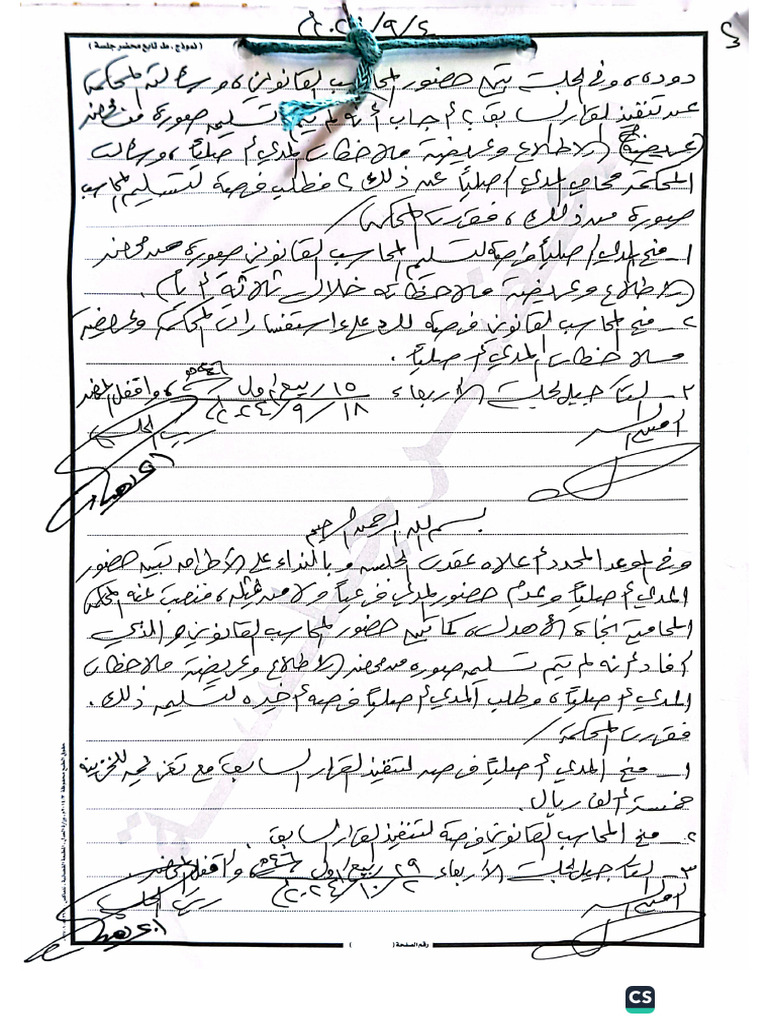 ٢٠٢٤/٩/٤م
(نموذج. ط. تابع محضر جلسة)
دوده، وفي الجلسة تبين حضور المحاسب القانوني، وسألته المحكمة
عن تنفيذ القرار السابق؟ أجاب أنه لم يتم تسليمه صورة من محضر
الاطلاع وعريضة ملاحظات المدعي أصلياً، وسألت
المحكمة محامي المدعي أصلياً عن ذلك؟ فطلب فرصة لتسليم المحاسب
صورة من ذلك، فقررت المحكمة/
١- منح المدعي أصلياً فرصة لتسليم المحاسب القانوني صورة من محضر
الاطلاع وعريضة ملاحظاته خلال ثلاثة أيام.
٢- منح المحاسب القانوني فرصة للرد على استفسارات المحكمة وعريضة
ملاحظات المدعي أصلياً.
٣- التأجيل لجلسة الأربعاء ١٥ ربيع أول ١٤٤٦هـ، وأقفل المحضر
٢٠٢٤/٩/١٨م
أمين السر
رئيس الجلسة
بسم الله الرحمن الرحيم
وفي الموعد المحدد أعلاه عقدت الجلسة وبالنداء على الأطراف تبين حضور
المدعي أصلياً وعدم حضور المدعي فرعياً ولا من يمثله، فنصبت عنه المحكمة
المحامية نجاة الأهدل، كما تبين حضور المحاسب القانوني والذي
أفاد أنه لم يتم تسليمه صورة من محضر الاطلاع وعريضة ملاحظات
المدعي أصلياً، وطلب المدعي أصلياً فرصة أخيرة لتسليمه ذلك.
فقررت المحكمة/
١- منح المدعي أصلياً فرصة لتنفيذ القرار السابق مع تغريمه للخزينة
خمسة ألف ريال.
٢- منح المحاسب القانوني فرصة لتنفيذ القرار السابق.
٣- التأجيل لجلسة الأربعاء ٢٩ ربيع أول ١٤٤٦هـ، وأقفل المحضر.
٢٠٢٤/١٠/٢م
أمين السر
رئيس الجلسة
رقم الصفحة ( )
CS